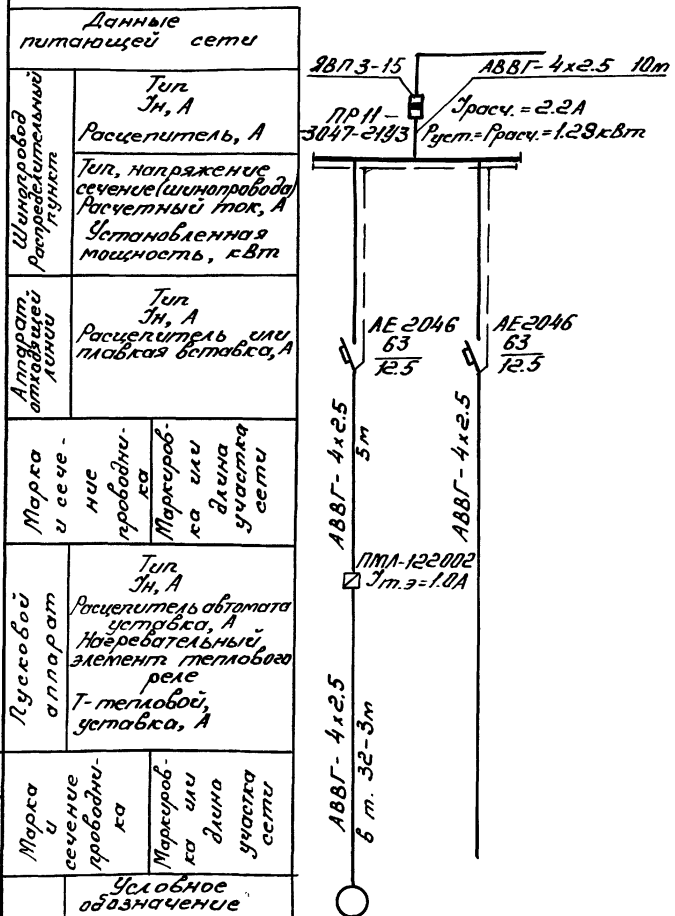 Данные
питающей сети
Шинопровод
Распределительный
пункт
Тип
Iн, А
Расцепитель, А
Тип, напряжение
сечение (шинопровода)
Расчетный ток, А
Установленная
мощность, кВт
Аппарат
отходящей
линии
Тип
Iн, А
Расцепитель или
плавкая вставка, А
Марка
и сече-
ние
проводни-
ка
Маркиров-
ка или
длина
участка
сети
Пусковой
аппарат
Тип
Iн, А
Расцепитель автомата
уставка, А
Нагревательный
элемент теплового
реле
Т-тепловой,
уставка, А
Марка
и
сечение
проводни-
ка
Маркиров-
ка или
длина
участка
сети
Условное
обозначение
ЯВПЗ-15
АВВГ-4х2.5 10м
ПР11-
3047-21У3
Iрасч.=2.2А
Руст.=Ррасч.=1.29кВт
АЕ2046
63
12.5
АЕ2046
63
12.5
АВВГ-4х2.5
5м
АВВГ-4х2.5
ПМЛ-122002
Iт.э=1.0А
АВВГ-4х2.5
в т. 32-3м